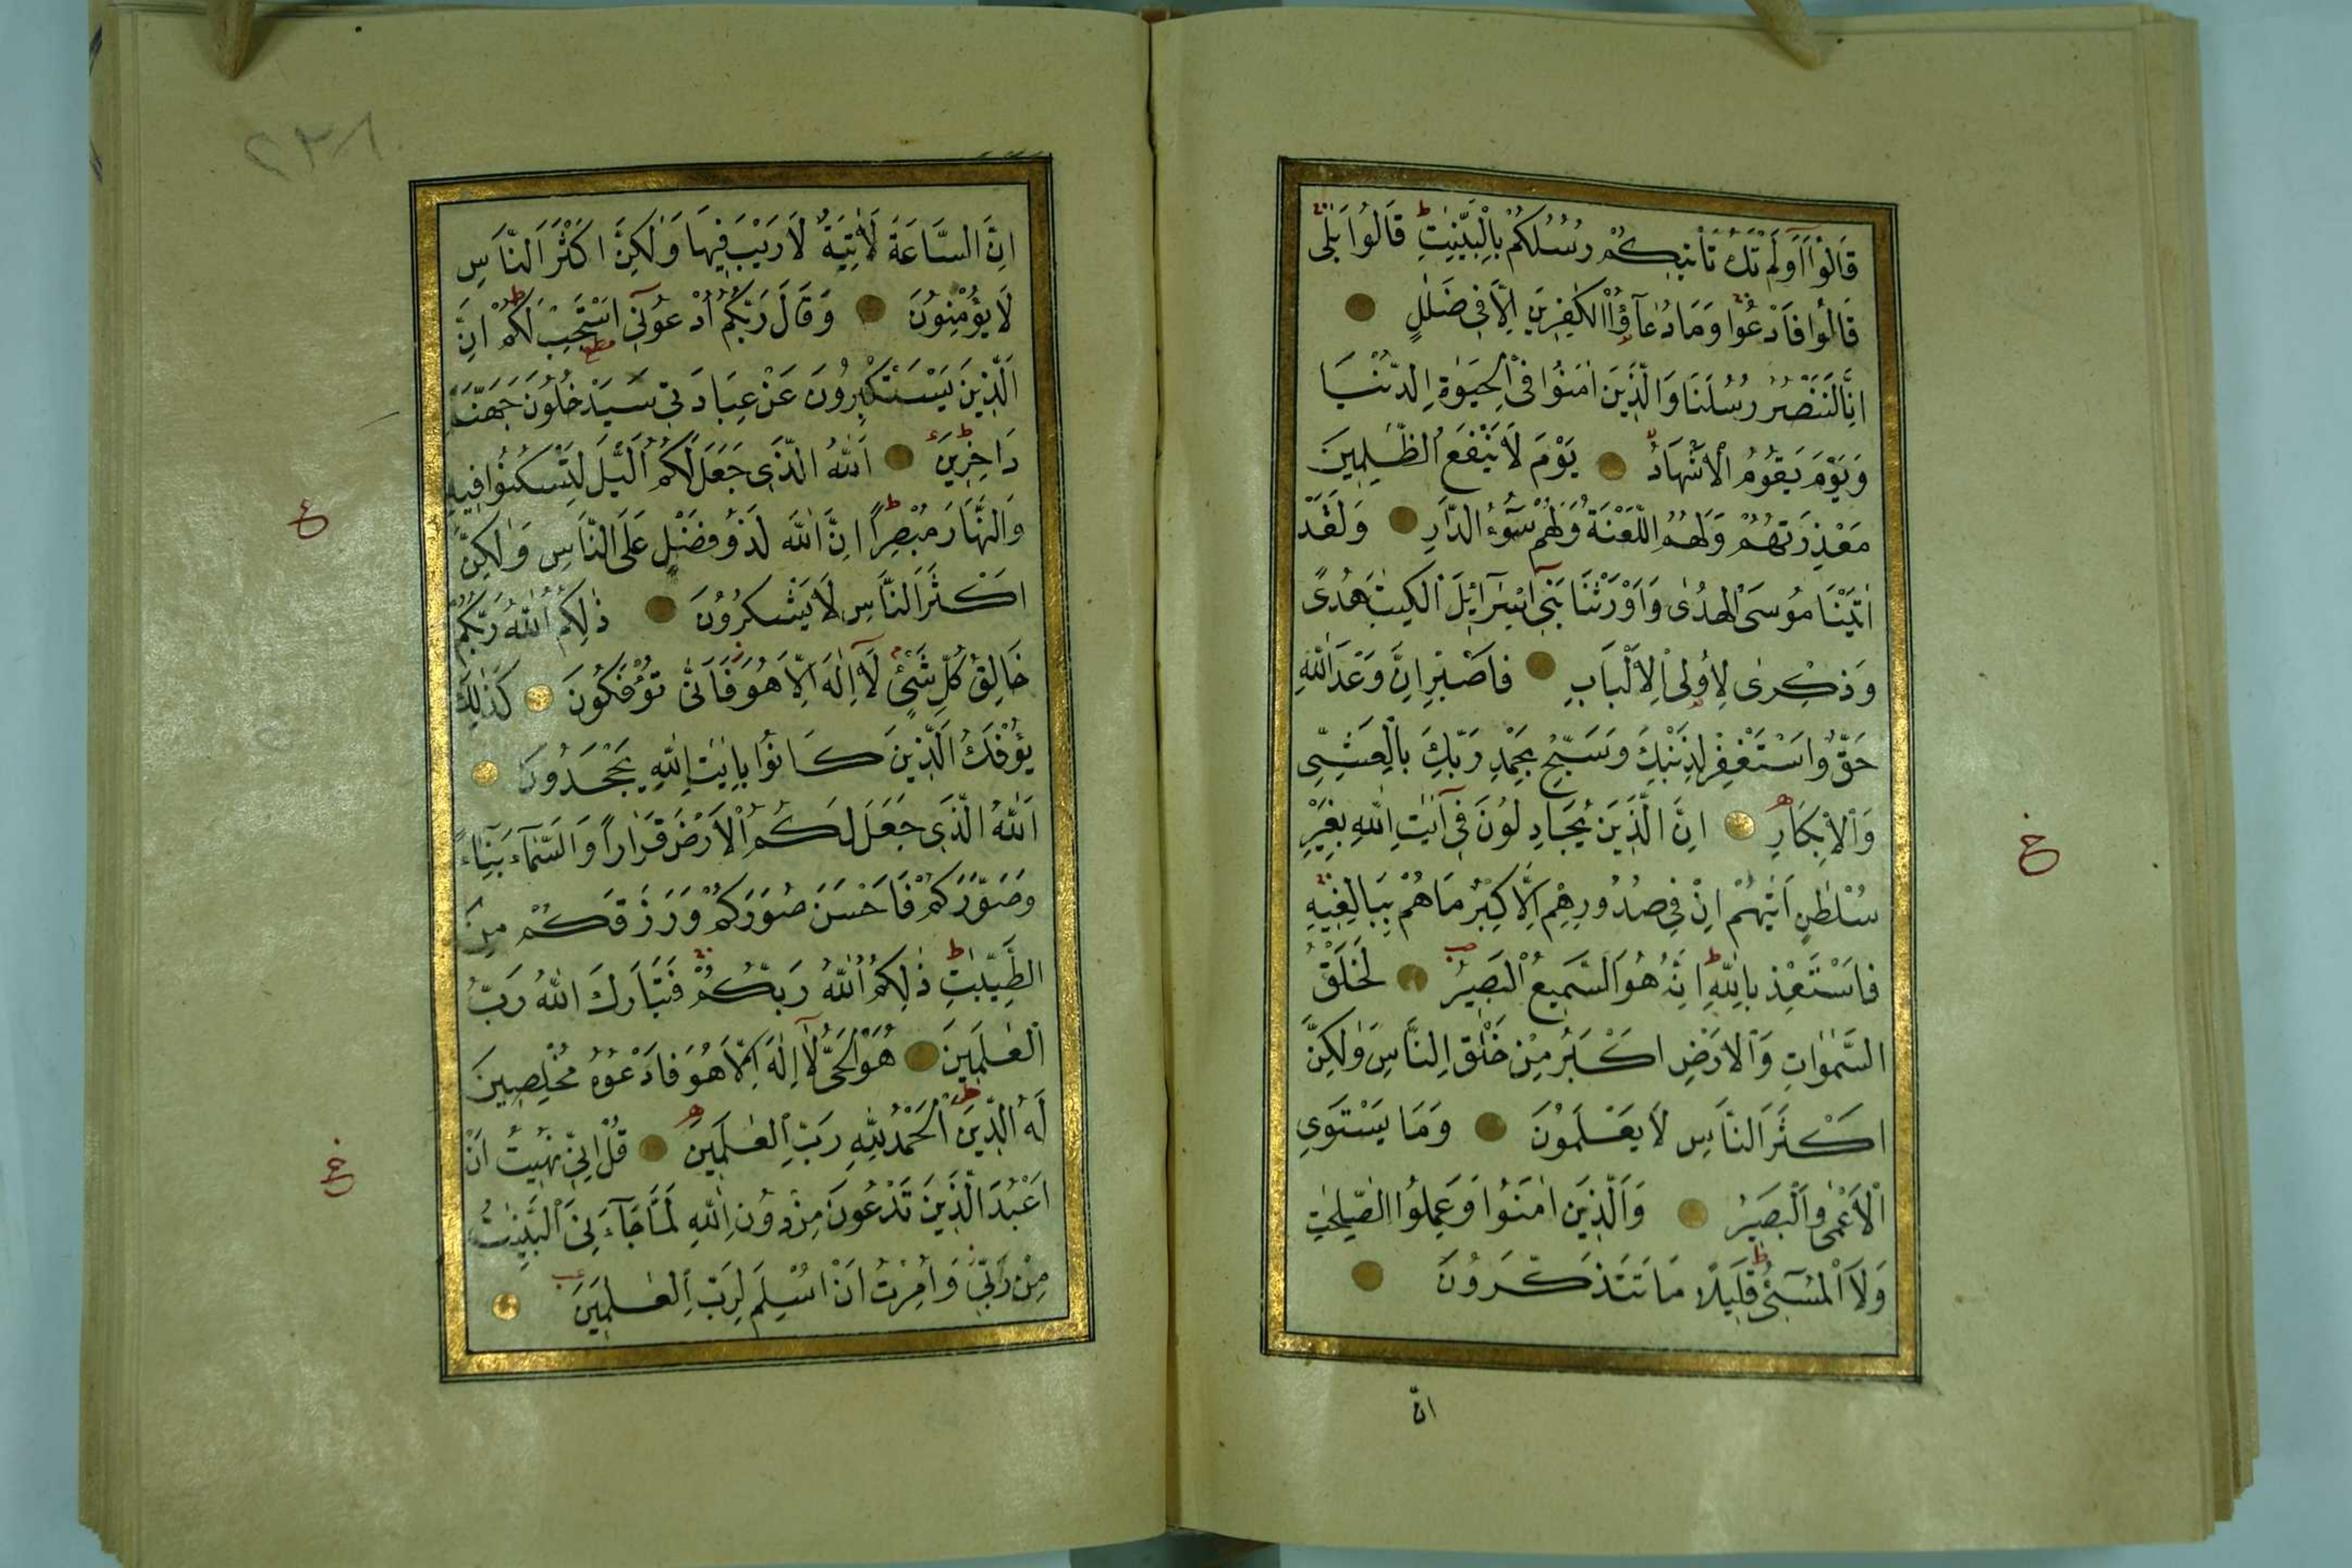 قَالُوٓا اَوَلَمْ تَكُ تَأْتِيكُمْ رُسُلُكُمْ بِالْبَيِّنٰتِ قَالُوا بَلٰى
قَالُوا فَادْعُوا وَمَا دُعٰٓؤُا الْكٰفِرِينَ اِلَّا فِى ضَلٰلٍ
اِنَّا لَنَنْصُرُ رُسُلَنَا وَالَّذِينَ اٰمَنُوا فِى الْحَيٰوةِ الدُّنْيَا
وَيَوْمَ يَقُومُ الْاَشْهَادُ يَوْمَ لَا يَنْفَعُ الظّٰلِمِينَ
مَعْذِرَتُهُمْ وَلَهُمُ اللَّعْنَةُ وَلَهُمْ سُوٓءُ الدَّارِ وَلَقَدْ
اٰتَيْنَا مُوسَى الْهُدٰى وَاَوْرَثْنَا بَنِىٓ اِسْرَآئِلَ الْكِتٰبَ هُدًى
وَذِكْرٰى لِاُولِى الْاَلْبَابِ فَاصْبِرْ اِنَّ وَعْدَ اللّٰهِ
حَقٌّ وَاسْتَغْفِرْ لِذَنْبِكَ وَسَبِّحْ بِحَمْدِ رَبِّكَ بِالْعَشِىِّ
وَالْاِبْكَارِ اِنَّ الَّذِينَ يُجَادِلُونَ فِىٓ اٰيٰتِ اللّٰهِ بِغَيْرِ
سُلْطٰنٍ اَتٰيهُمْ اِنْ فِى صُدُورِهِمْ اِلَّا كِبْرٌ مَا هُمْ بِبَالِغِيهِ
فَاسْتَعِذْ بِاللّٰهِ اِنَّهُ هُوَ السَّمِيعُ الْبَصِيرُ لَخَلْقُ
السَّمٰوَاتِ وَالْاَرْضِ اَكْبَرُ مِنْ خَلْقِ النَّاسِ وَلٰكِنَّ
اَكْثَرَ النَّاسِ لَا يَعْلَمُونَ وَمَا يَسْتَوِى
الْاَعْمٰى وَالْبَصِيرُ وَالَّذِينَ اٰمَنُوا وَعَمِلُوا الصّٰلِحٰتِ
وَلَا الْمُسِىٓءُ قَلِيلًا مَا تَتَذَكَّرُونَ
خ
انّ
٢٣٨
اِنَّ السَّاعَةَ لَاٰتِيَةٌ لَا رَيْبَ فِيهَا وَلٰكِنَّ اَكْثَرَ النَّاسِ
لَا يُؤْمِنُونَ وَقَالَ رَبُّكُمُ ادْعُونِىٓ اَسْتَجِبْ لَكُمْ اِنَّ
الَّذِينَ يَسْتَكْبِرُونَ عَنْ عِبَادَتِى سَيَدْخُلُونَ جَهَنَّمَ
دَاخِرِينَ اَللّٰهُ الَّذِى جَعَلَ لَكُمُ الَّيْلَ لِتَسْكُنُوا فِيهِ
وَالنَّهَارَ مُبْصِرًا اِنَّ اللّٰهَ لَذُو فَضْلٍ عَلَى النَّاسِ وَلٰكِنَّ
اَكْثَرَ النَّاسِ لَا يَشْكُرُونَ ذٰلِكُمُ اللّٰهُ رَبُّكُمْ
خَالِقُ كُلِّ شَىْءٍ لَآ اِلٰهَ اِلَّا هُوَ فَاَنّٰى تُؤْفَكُونَ كَذٰلِكَ
يُؤْفَكُ الَّذِينَ كَانُوا بِاٰيٰتِ اللّٰهِ يَجْحَدُونَ
اَللّٰهُ الَّذِى جَعَلَ لَكُمُ الْاَرْضَ قَرَارًا وَالسَّمَآءَ بِنَآءً
وَصَوَّرَكُمْ فَاَحْسَنَ صُوَرَكُمْ وَرَزَقَكُمْ مِنَ
الطَّيِّبٰتِ ذٰلِكُمُ اللّٰهُ رَبُّكُمْ فَتَبَارَكَ اللّٰهُ رَبُّ
الْعٰلَمِينَ هُوَ الْحَىُّ لَآ اِلٰهَ اِلَّا هُوَ فَادْعُوهُ مُخْلِصِينَ
لَهُ الدِّينَ اَلْحَمْدُ لِلّٰهِ رَبِّ الْعٰلَمِينَ قُلْ اِنِّى نُهِيتُ اَنْ
اَعْبُدَ الَّذِينَ تَدْعُونَ مِنْ دُونِ اللّٰهِ لَمَّا جَآءَنِىَ الْبَيِّنٰتُ
مِنْ رَبِّى وَاُمِرْتُ اَنْ اُسْلِمَ لِرَبِّ الْعٰلَمِينَ
ع